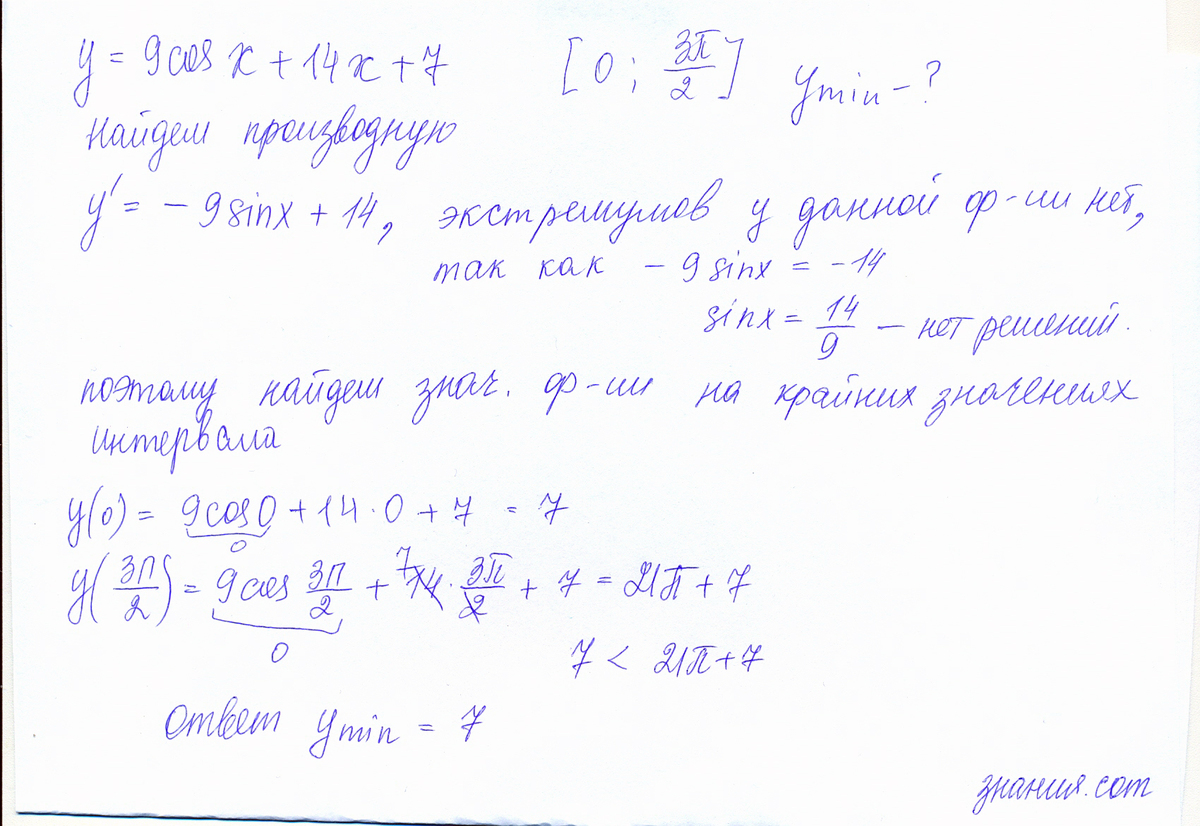 y = 9cos x + 14x + 7 [0; 3π/2] ymin - ?
Найдем производную
y' = - 9sinx + 14, экстремумов у данной ф-ии нет,
так как - 9 sinx = -14
sinx = 14/9 — нет решений.
поэтому найдем знач. ф-ии на крайних значениях
интервала
y(0) = 9cos0 + 14 · 0 + 7 = 7
0
y(3π/2) = 9cos 3π/2 + 7 14 · 3π/2 + 7 = 21π + 7
0
7 < 21π + 7
Ответ ymin = 7
знания.com